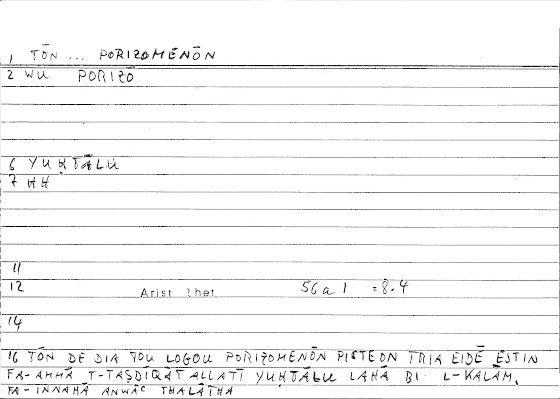 1 TŌN ... PORIZOMÉNŌN
2 WU PORIZŌ
6 YUḤTĀLU
7 ḤḤ
11
12 Arist Rhet 56a1 =8.4
14
16 TŌN DE DIA TOU LOGOU PORIZOMENŌN PISTEON TRIA EIDĒ ESTIN
FA-AMMĀ T-TAṢDĪQĀT ALLATĪ YUḤTĀLU LAHĀ BI L-KALĀM,
FA-INNAHĀ ANWĀC THALĀTHA